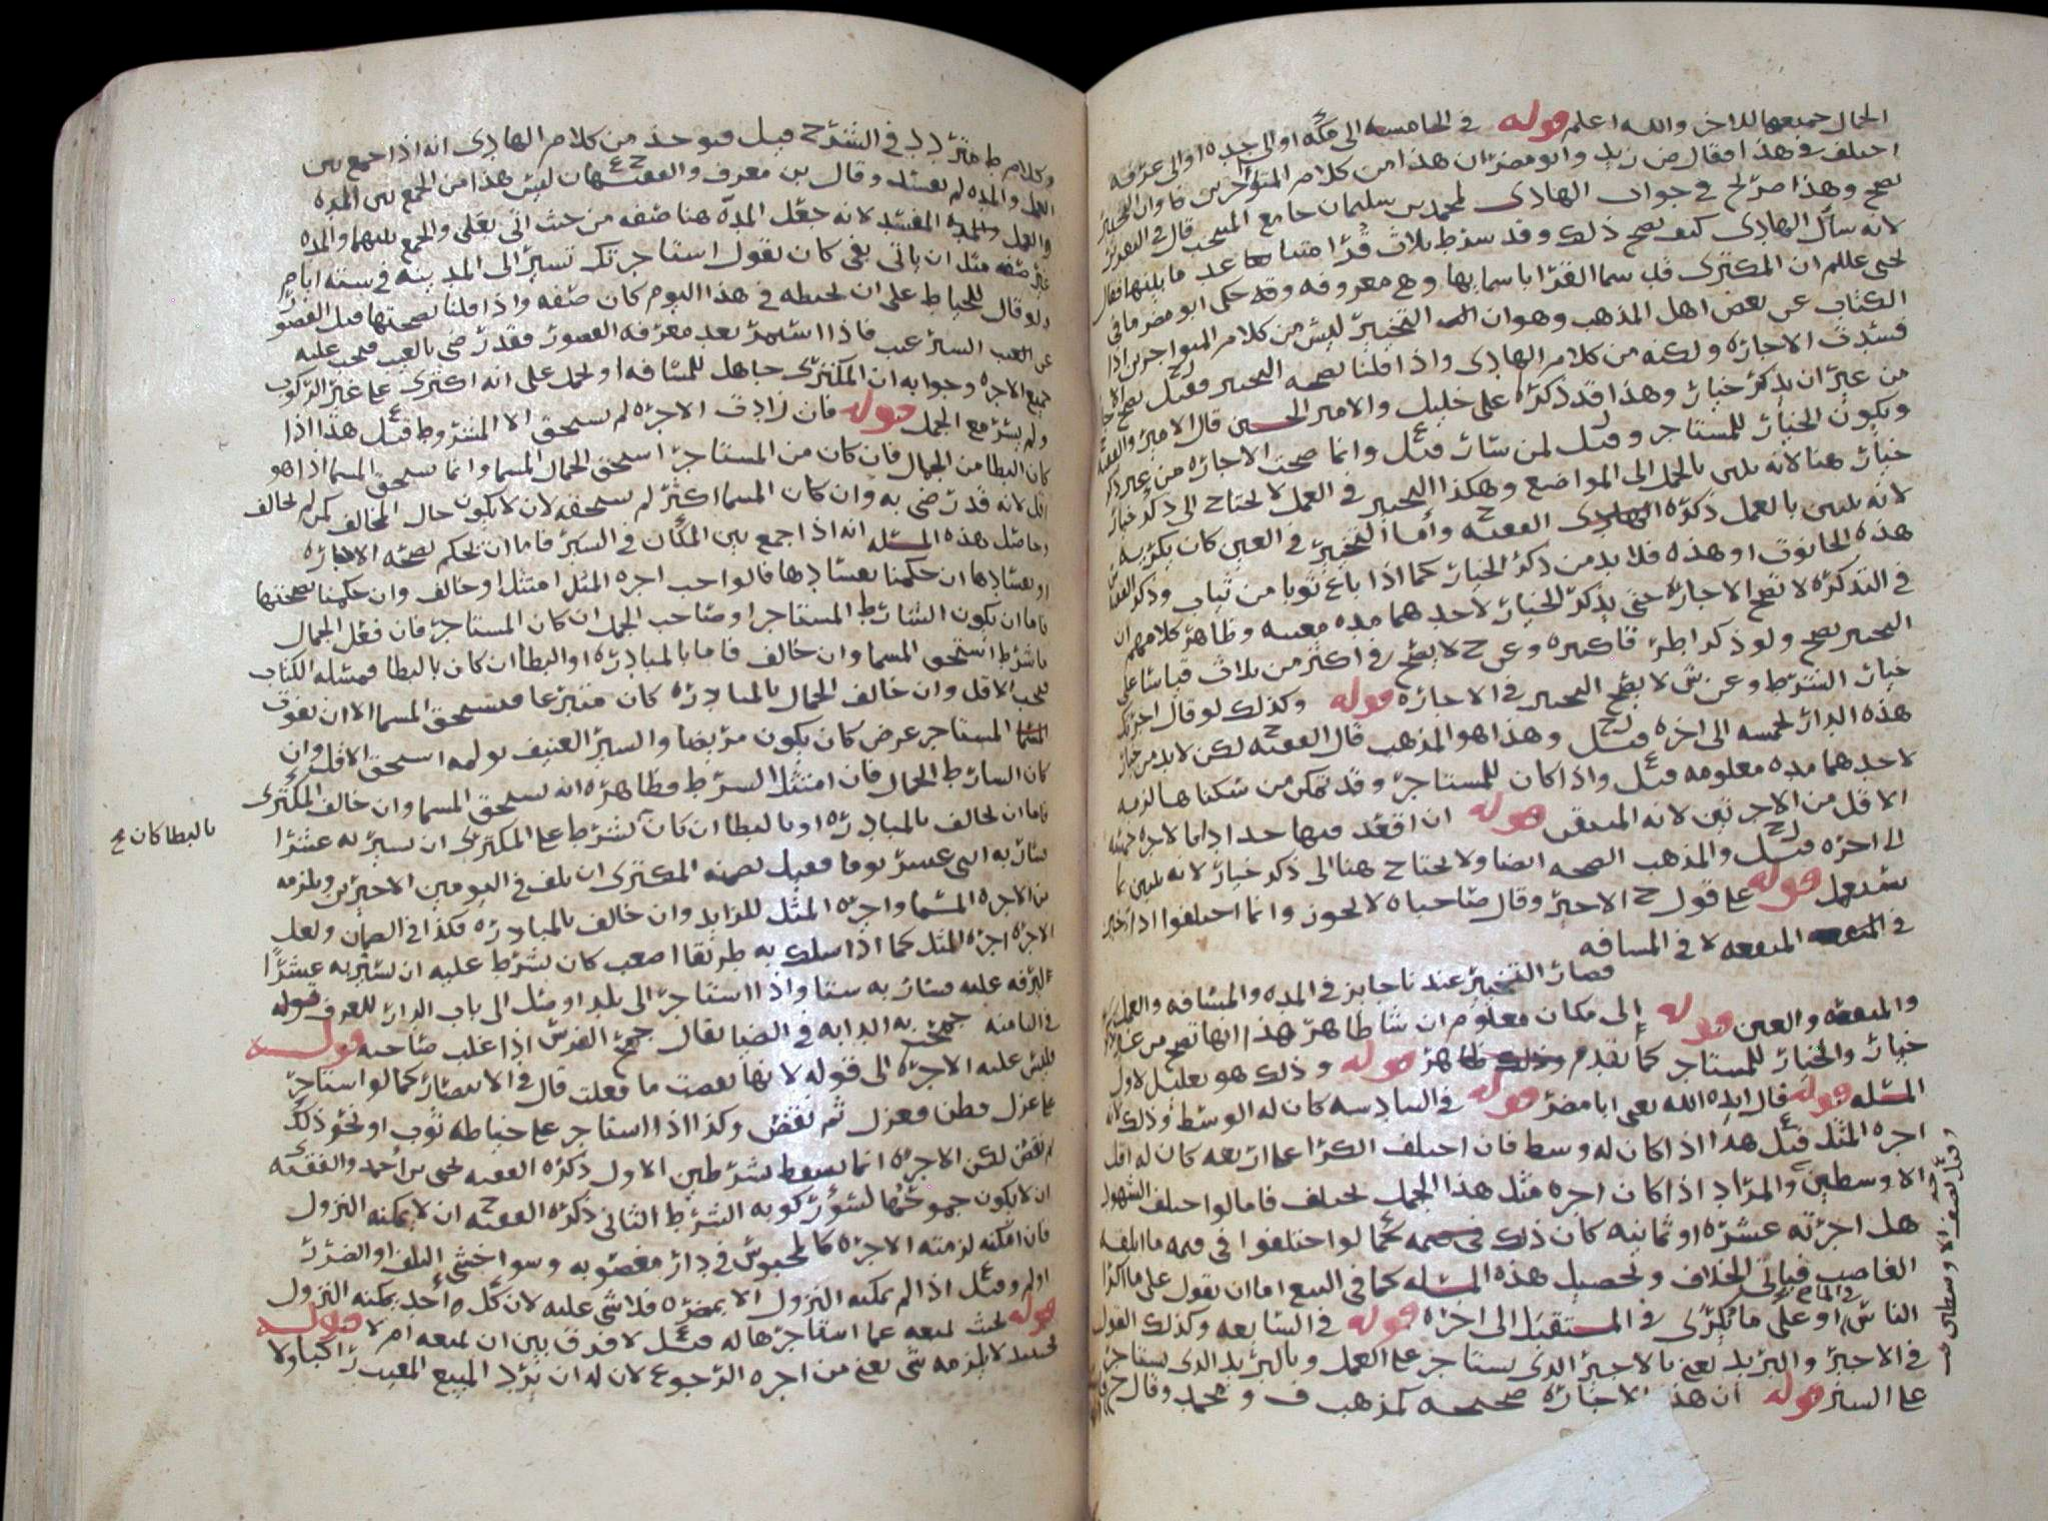 الجمال جميعها للاخر والله اعلم قوله في الخامسه الى مكه او الى جده او الى عرفه
اختلف في هذا فقال ض زيد وابو مضر ان هذا من كلام المتواجرين فاوان التخيير
يصح وهذا صرح في جواب الهادي لمحمد بن سليمان جامع المنتخب قال في التقرير
لانه سأل الهادي كيف يصح ذلك وقد شرط بثلاث قرا متباعد ما بينها فقال
يحيى عليلم ان المكتري قد سما القرا باسمايها وهي معروفه وقد حكى ابو مضر ما في
الكتاب عن بعض اهل المذهب وهو ان التخيير ليس من كلام المتواجرين اذا
فسدت الاجاره ولكنه من كلام الهادي واذا قلنا بصحه التخيير فقيل يصح
من غير ان يذكر خيار وهذا قد ذكره علي خليل والامير الحسين قال الامير
ويكون الخيار للمستاجر وقيل لمن شاء قيل وانما صحت الاجاره من غير ذكر
خيار هنا لانه يتعين بالحمل الى المواضع وهكذا التخيير في العمل لا يحتاج الى ذكر خيار
لانه يتعين بالعمل ذكره الفقيه ح واما التخيير في العين كان يكريه
هذه الحانوت او هذه فلا بد من ذكر الخيار كما اذا باع ثوبا من ثياب وذكر
في التذكره لا تصح الاجاره حتى يذكر الخيار لاحدهما مده معينه وظاهر كلامهم ان
التخيير يصح ولو ذكر اطر فاكثره وعن ح لا يصح في اكثر من ثلاث قياسا على
خيار الشرط وعن ش لا يصح التخيير في الاجاره قوله وكذلك لو قال اجرتك
هذه الدار بخمسه الى اخره قيل وهذا هو المذهب قال الفقيه ح لكن لا بد من خيار
لاحدهما مده معلومه قيل واذا كان للمستاجر وقد تمكن من سكناها لزمه
الاقل من الاجرتين لانه المتيقن قوله ان اقعد فيها حدادا بالاجره خمسه
الى اخره قيل والمذهب الصحه ايضا ولا يحتاج هنا الى ذكر خيار لانه يتعين بما
يستعمل قوله على قول ح الاخير وقال صاحباه لا يجوز وانما اختلفوا اذا خير
في المنفعه لا في المسافه
فصار التخيير عندنا جايز في المده والمسافه والعمل
والمنفعه والعين قوله الى مكان معلوم ان شا ظاهر هذا انها تصح من غير ذكر
خيار والخيار للمستاجر كما تقدم قوله وذلك هو تعليل لاول
المسله قوله قال ايده الله يعني ابا مضر قوله في السادسه كان له الوسط وذلك لان
اجره المثل قيل هذا اذا كان له وسط فان اختلف الكرا على اربعه كان له اقل
الاوسطين والمراد اذا كان اجره مثل هذا الحمل يختلف فاما لو اختلف الشهود
هل اجرته عشره او ثمانيه كان ذلك كما لو اختلفوا في قيمه ما اتلفه
الغاصب فياتي الخلاف وتحصيل هذه المسله كما في البيع اما ان يقول على ما اكرا
الناس او على ما يكرى في المستقبل الى اخره قوله في السابعه وكذلك القول
في الاجير والبريد يعني بالاجير الذي يستاجر على العمل وبالبريد الذي يستاجر
على السير قوله ان هذه الاجاره صحيحه كمذهب ف و محمد وقال ح
وقيل نصف الاوسطين
وكلام ط متردد في الشرح قيل فيوخذ من كلام الهادي انه اذا جمع بين
العمل والمده لم يفسد وقال بن معرف والفقيهان ليس هذا من الجمع بين المده
والعمل المفسد لانه جعل المده هنا صفه من حيث اتى بفي والجمع بينهما والمده
غير صفه مثل ان ياتي بفي كان يقول استاجرتك تسير الى المدينه في سته ايام
ولو قال للخياط على ان تخيطه في هذا اليوم كان صفه واذا قلنا بصحتها قبل القصور
عن السير عيب فاذا استمر بعد معرفه القصور فقد رضي بالعيب فيجب عليه
جميع الاجره وجوابه ان المكتري جاهل للمسافه او يحمل على انه اكترى على غير الركوب
ولم يسر مع الجمل قوله فان زادت الاجره لم يستحق الا المشروط قيل هذا اذا
كان البطا من الجمال فان كان من المستاجر استحق الجمال المسما وانما يستحق المسما اذا هو
اقل لانه قد رضي به وان كان المسما اكثر لم يستحقه لان لا يكون حال المخالف كمن لم يخالف
وحاصل هذه المسله انه اذا جمع بين المكان في السير فاما ان يحكم بصحه الاجاره
او بفسادها ان حكمنا بفسادها فالواجب اجره المثل امتثل او خالف وان حكمنا بصحتها
فاما ان يكون الشارط المستاجر او صاحب الجمل ان كان المستاجر فان فعل الجمال
ما شرط استحق المسما وان خالف فاما بالمبادره او البطا ان كان بالبطا فمسله الكتاب
يجب الاقل وان خالف الجمال بالمبادره كان متبرعا فيستحق المسما الا ان يفوت
المستاجر عرض كان يكون مريضا والسير العنيف يولمه استحق الاقل وان
كان الشارط الجمال فان امتثل الشرط فظاهره انه يستحق المسما وان خالف المكتري
فاما ان يخالف بالمبادره او بالبطا ان كان يشترط على المكتري ان يسير به عشرا
بالبطا كان
سار به اثنى عشر يوما فقيل يضمنه المكتري ان تلف في اليومين الاخيرين ويلزمه
من الاجره المسما واجره المثل للزايد وان خالف بالمبادره فكذا في الضمان ولعل
الاجره اجره المثل كما اذا سلك به طريقا اصعب كان يشرط عليه ان يسير به عشرا
للترفه عليه فسار به ستا واذا استاجر الى بلد او مثل الى باب الدار للعرف قوله
في الثامنه جمحت به الدابه في الضيا يقال جمح الفرس اذا غلب صاحبه قوله
فليس عليه الاجره الى قوله لانها نقضت ما فعلت قال في الانتصار كما لو استاجر
على غزل قطن فغزل ثم نقض وكذا اذا استاجر على خياطه ثوب او نحو ذلك
ثم نقض لكن الاجره انما تسقط بشرطين الاول ذكره الفقيه يحيى بن احمد والفقيه
ان لا يكون جموحها لسؤ ركوبه الشرط الثاني ذكره الفقيه ح ان لا يمكنه النزول
فان امكنه لزمته الاجره كالمحبوس في دار مغصوبه وسوا خشي التلف او الضرر
اولم وقيل اذا لم يمكنه النزول الا بمضره فلا شي عليه لان كل واحد يمكنه النزول
قوله بحيث لمنعه عما استاجرها له قيل لا فرق بين ان تمنعه ام لا قوله
فحينيذ لا يلزمه شي يعني من اجره الرجوع لان له ان يرد المبيع المعيب راكبا ولا